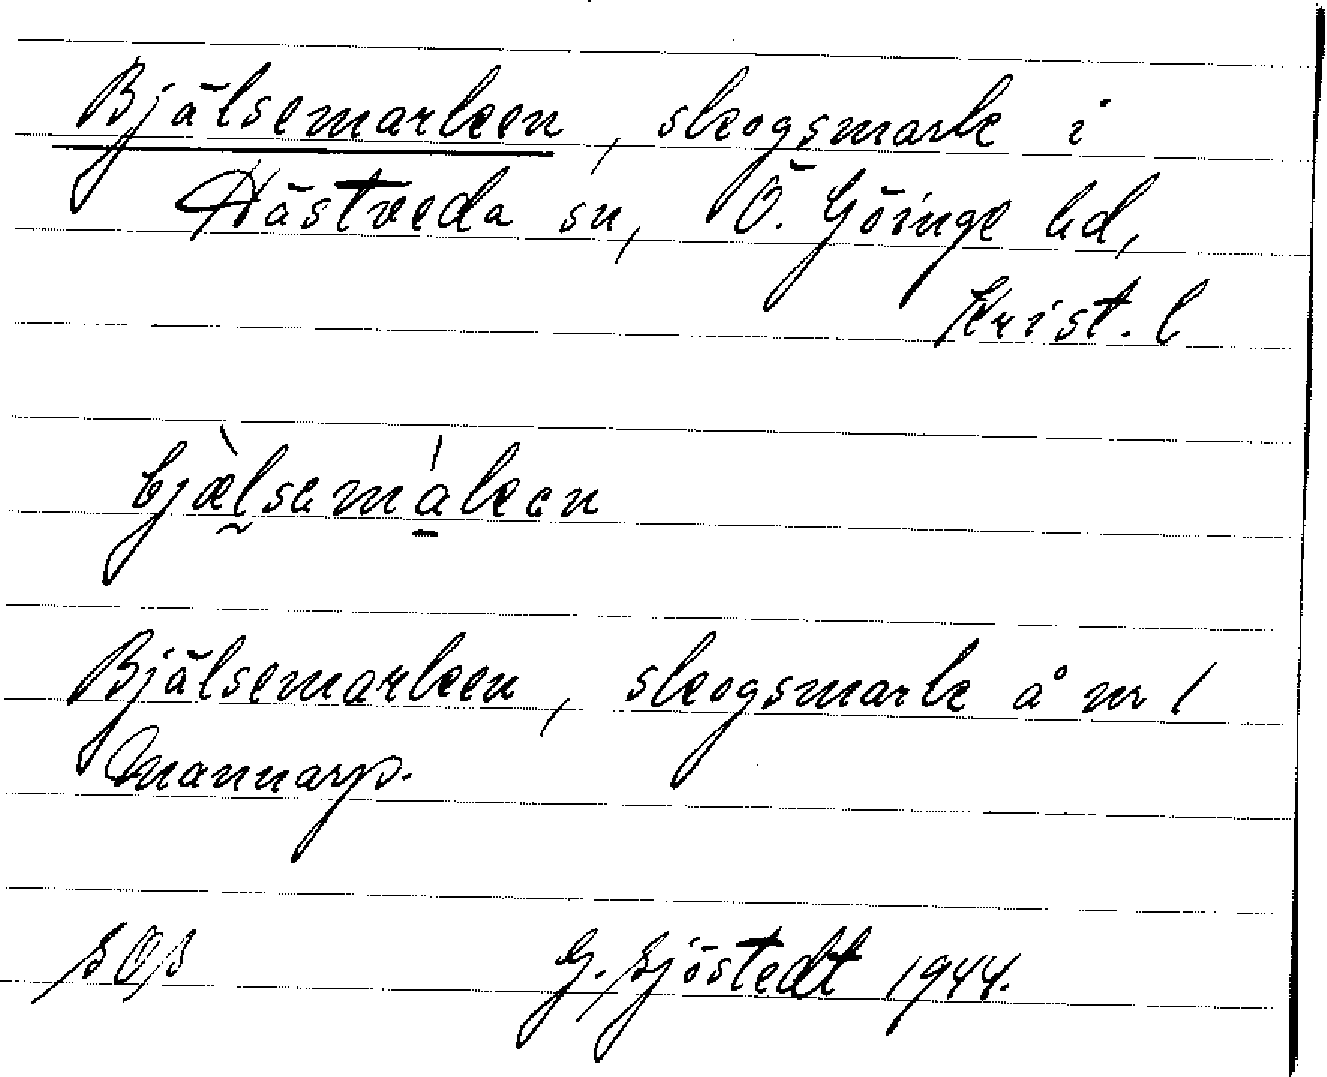 Bjälsemarken, skogsmark i
Hästveda sn, Ö. Göinge hd,
Krist. l
bjæ̀lsemáken
Bjälsemarken, skogsmark å nr 1
Mannarp.
SOS G. Sjöstedt 1944.